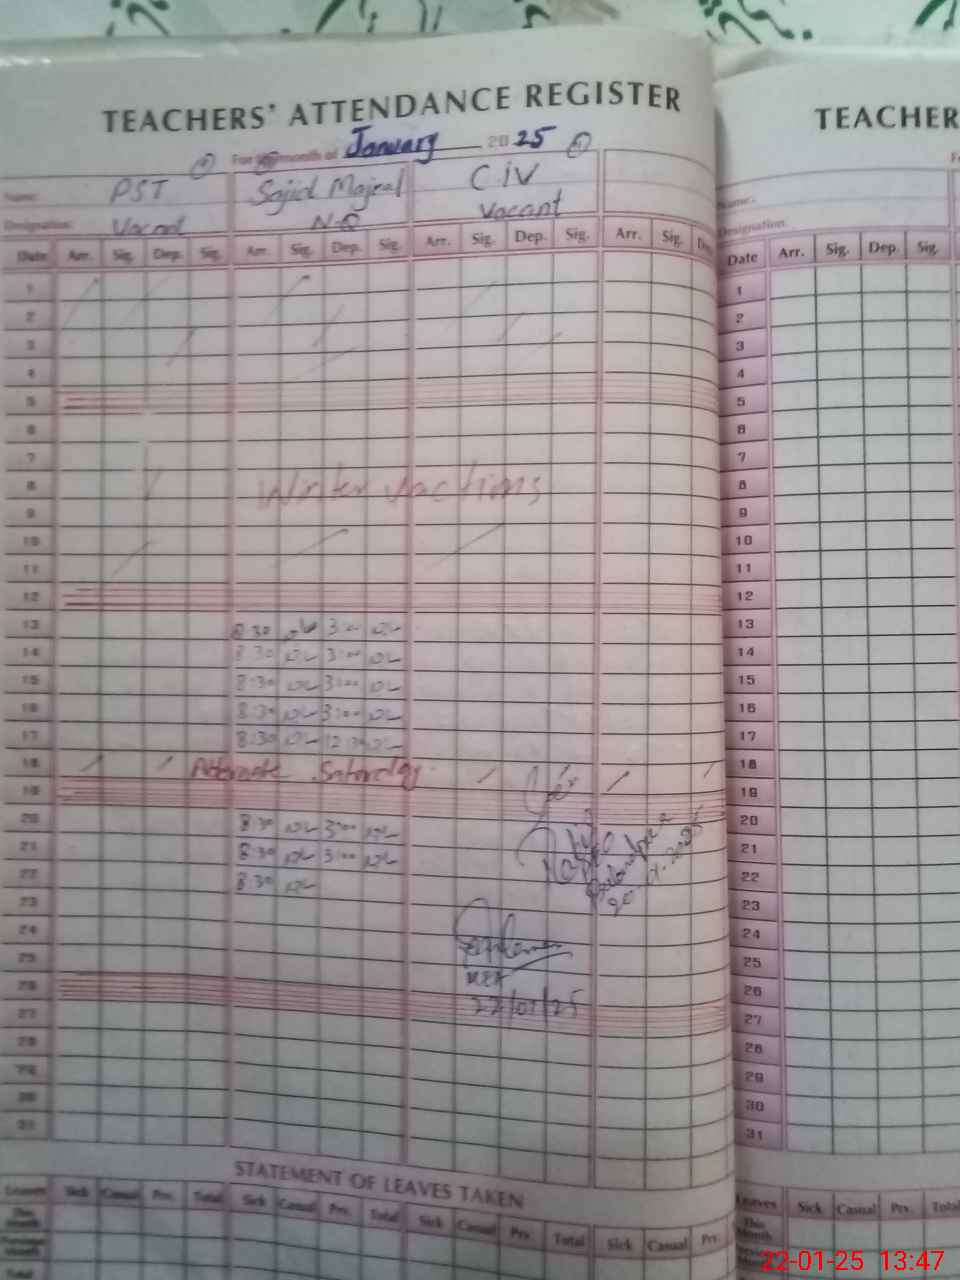 TEACHERS' ATTENDANCE REGISTER
For the month of January 2025
Name: PST Sajid Majeed C iV
Designation: Vacant N-Q Vacant
Date Arr. Sig. Dep. Sig. Arr. Sig. Dep. Sig. Arr. Sig. Dep. Sig. Arr. Sig.
1
2
3
4
5
6
7
8 Winter Vactions
9
10
11
12
13 8:30 3:00
14 8:30 3:00
15 8:30 3:00
16 8:30 3:00
17 8:30 12:30
18 Alternate Saturday
19
20 8:30 3:00
21 8:30 3:00
22 8:30
23
24
25
26
27 22/01/25
28
29
30
31
STATEMENT OF LEAVES TAKEN
Leaves Sick Casual Prv. Total Sick Casual Prv. Total Sick Casual Prv. Total Sick Casual Prv.
This Month
Previous Month
Total
TEACHER
Name.
Designation.
Date Arr. Sig. Dep. Sig.
1
2
3
4
5
6
7
8
9
10
11
12
13
14
15
16
17
18
19
20
21
22
23
24
25
26
27
28
29
30
31
Leaves Sick Casual Prv. Total
This Month
22-01-25 13:47